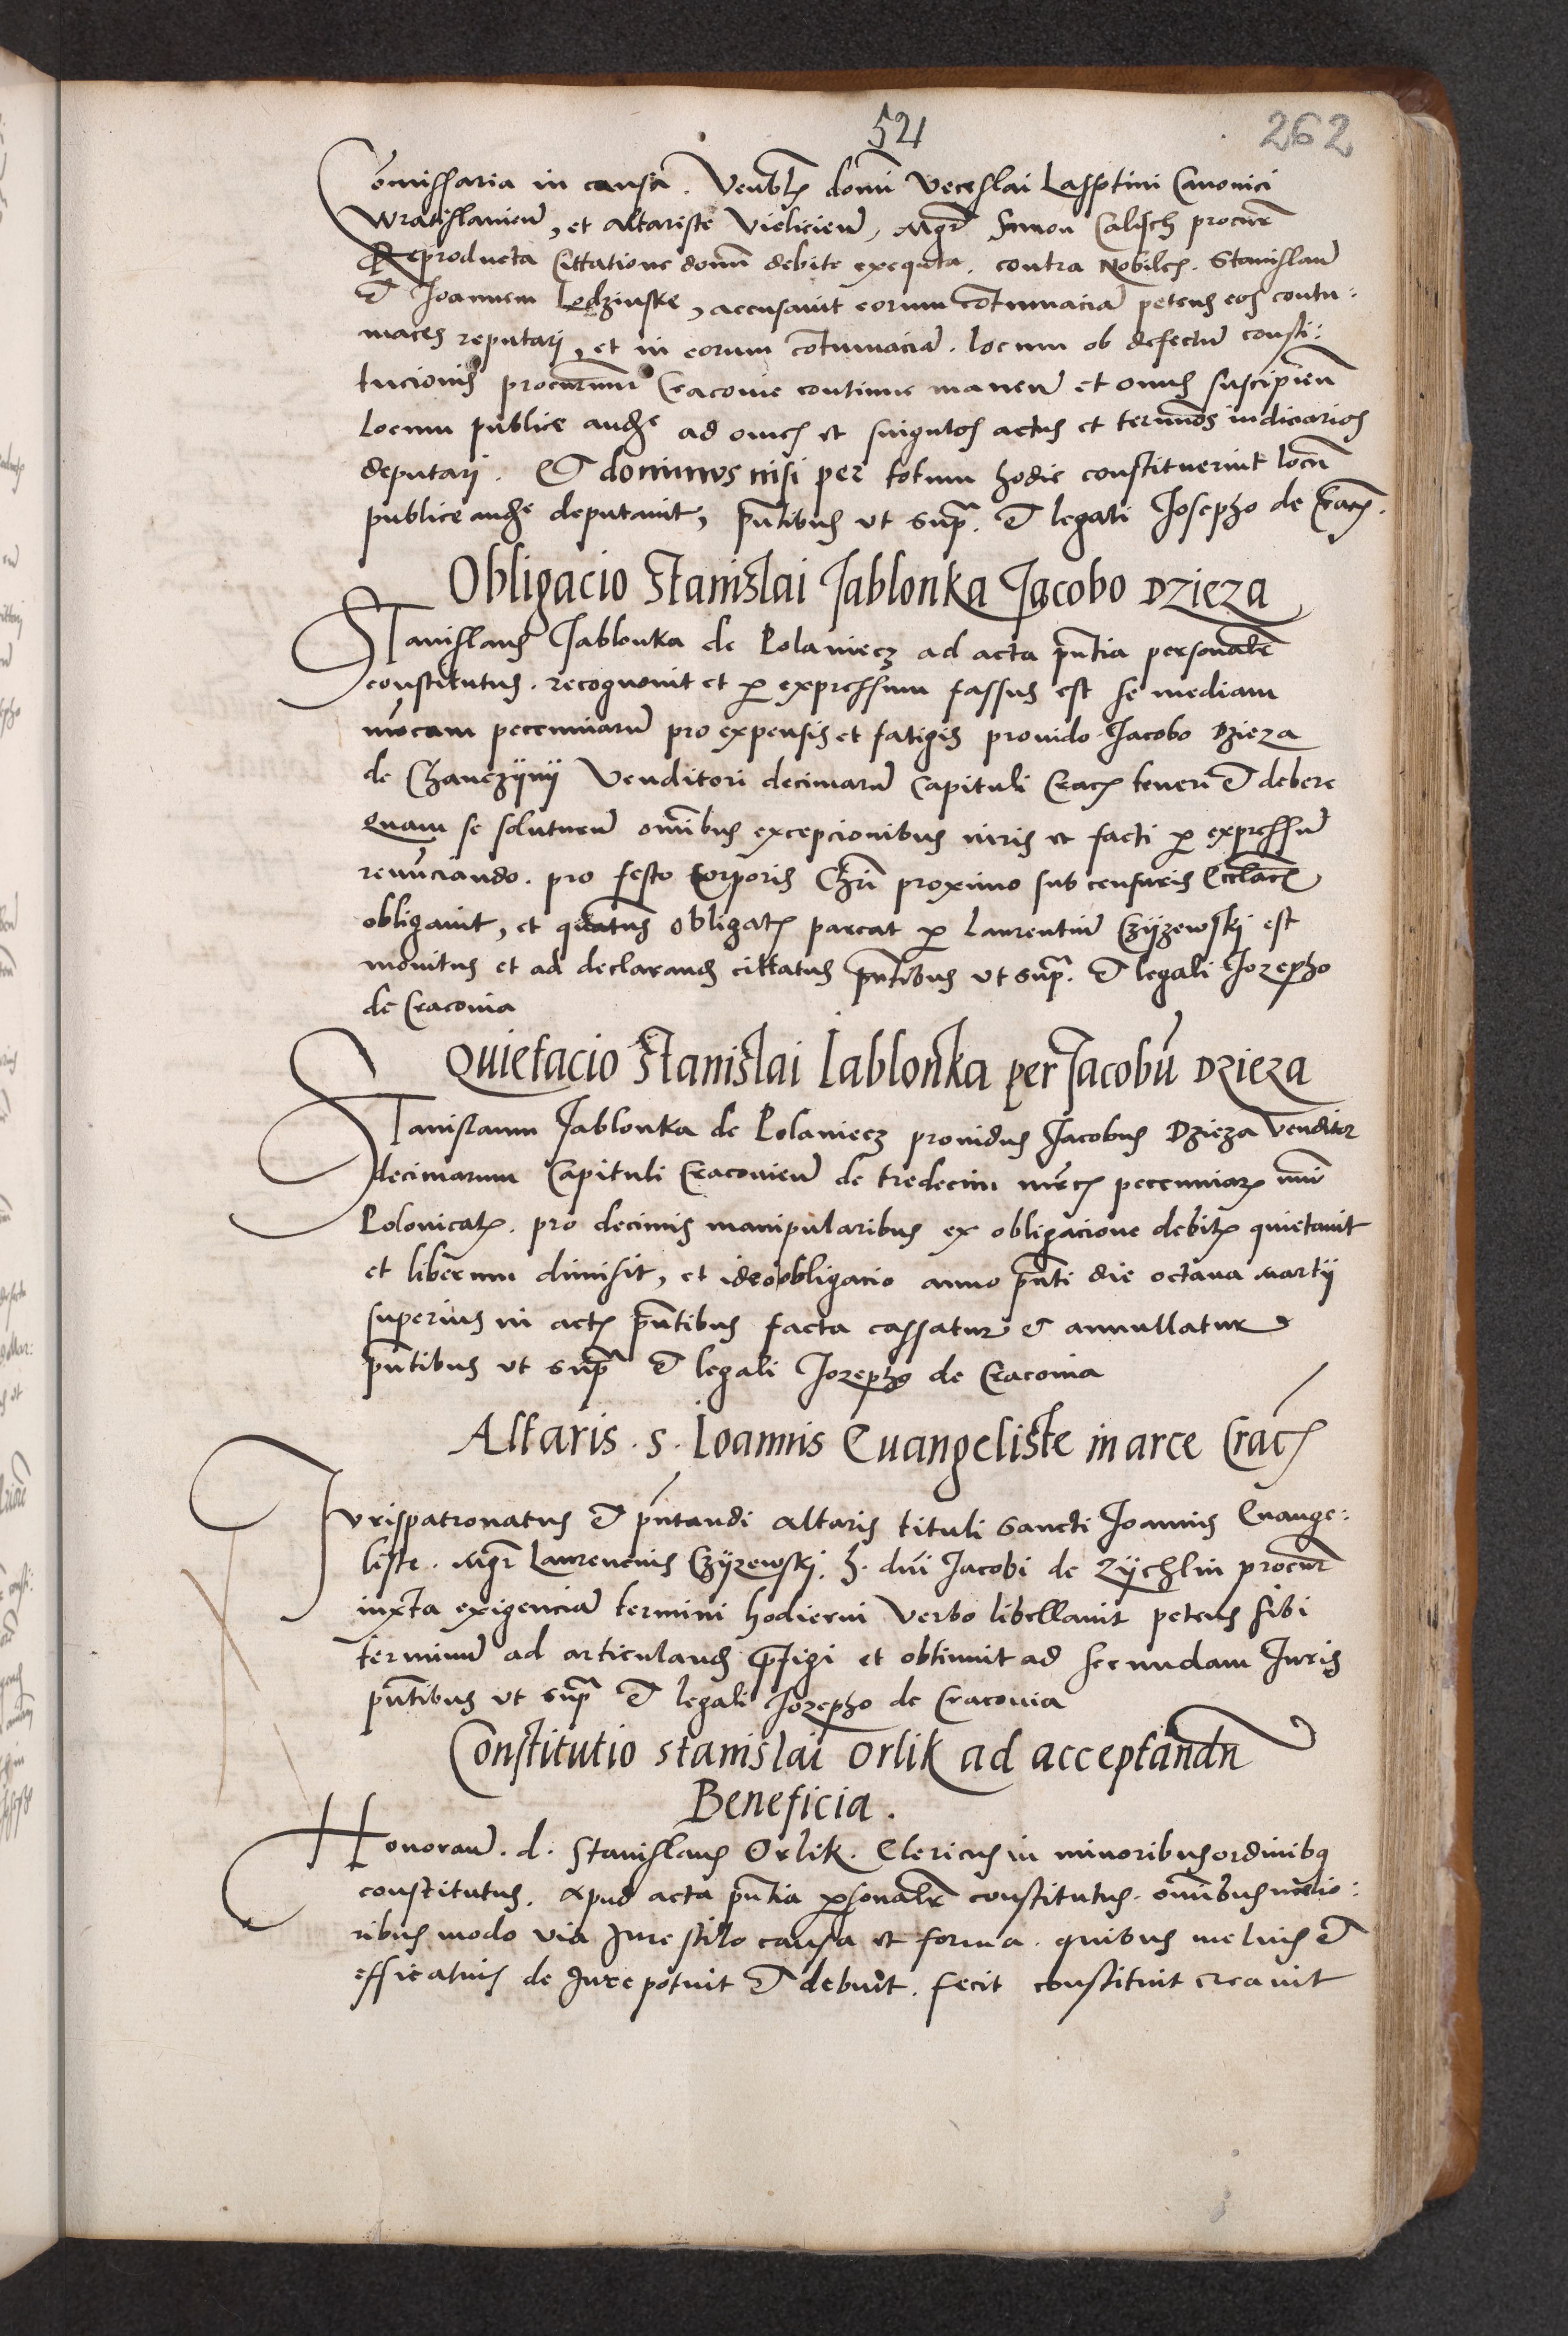 521
262
Comissaria in causa . Venblis domini Veceslai Lassotini Canonici
Wratislavien, et altariste Vieliciens, Mgr Simon Calisch procur
Reproducta Cittatione domini debite exequta . contra Nobiles . Stanislaum
et Joannem Ledzinske, accusavit eorum contumaciam petens eos contu:
maces reputari, et in eorum contumaciam . locum ob defectum consti:
tucionis procuratorum Cracovie continue manen et onus suscipien
locum publice audie ad omnes et singulos actus et terminos iudiciarios
deputari . Et dominus nisi per totum hodie constituerint locum
publice audie deputavit, pntibus ut supra . et legali Josepho de Crac .
Obligacio Stanislai Jablonka Jacobo Dzieza
Stanislaus Jablonka de Polaniecz ad acta pntia personaliter
constitutus . recognovit et per expressum fassus est se mediam
mrcam pecunniarum pro expensis et fatigis provido Jacobo Dzieza
de Chanczyny Venditori decimarum Capituli Crac teneri et debere
Quam se soluturum omnibus excepcionibus iuris et facti per expressum
renunciando . pro festo Corporis Chri proximo sub censuris Ecclasticis
obligavit, et quatenus obligat pareat per Laurentium Czyzewski est
monitus et ad declarand cittatus pntibus ut supra . et legali Jozepho
de Cracovia
Quietacio Stanislai Iablonka per Jacobum Dzieza
Stanislaum Jablonka de Polaniecz providus Jacobus Dzieza Venditor
decimarum Capituli Cracovien de tredecim mrcis pecunniarum mni
Polonicalis . pro decimis manipularibus ex obligacione debitis quietavit
et liberum dimisit, et ideo obligacio anno pnti die octava Martii
superius in actis pntibus facta cassatur et annullatur
pntibus ut supra et legali Jozepho de Cracovia
Altaris . S . Ioannis Evangeliste in arce Crac
Jurispatronatus et pntandi altaris tituli Sancti Joannis Evange:
liste . Mgr Laurencius Czyzewski . h . dni Jacobi de Zychlin procur
iuxta exigenciam termini hodierni verbo libellavit petens sibi
terminum ad articuland prefigi et obtinuit ad secundam Juris
pntibus ut supra et legali Jozepho de Cracovia
Constitutio Stanislai Orlik ad acceptandn
Beneficia .
Honoran . d . Stanislaus Orlik . Clericus in minoribus ordinibus
constitutus . Apud acta pntia personaliter constitutus . omnibus melio:
ribus modo via Jure stilo causa et forma . quibus melius et
efficatius de Jure potuit et debuit . fecit constituit creavit